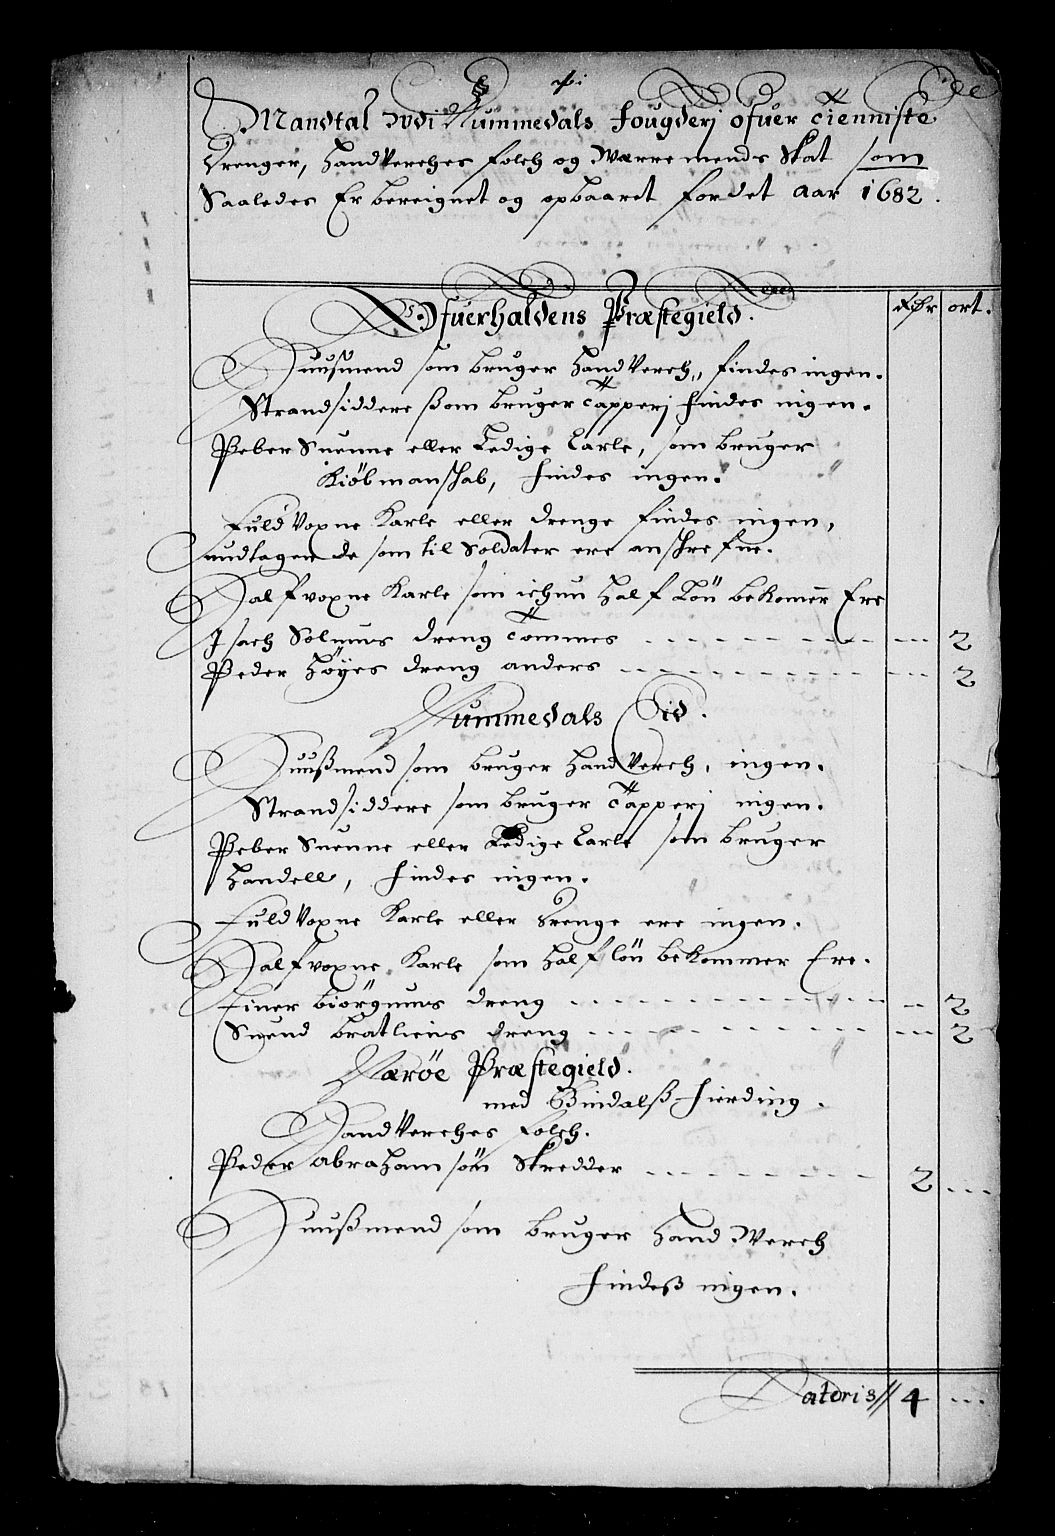 Mandtal Udi Nummedals fougderj ofuer tienniste
drenger, handVerches folch og Warremends Skat som
Saaledes Er bereignet og opbaaret for det aar 1682.
Rdr ort.
Ofuerhaldens Præstegield.
Huusmend som bruger handVerch, findes ingen.
Strandsiddere ßom bruger tapperj findes ingen.
Peber Suenne eller Ledige Carle, som bruger
Kiöbmanshab, findes ingen.
Fuld Voxne Karle eller drenge findes ingen,
undtagen de som til Soldater ere anshrefne.
Half voxne Karle som ichun half Lön bekomer Ere
Isach Solmus dreng Tommes 2
Peder höyes dreng anders 2
Nummedals Eid.
Huußmend som bruger handVerch, ingen.
Strandsiddere som bruger tapperj ingen.
Peber Suenne eller Ledige Carle som bruger
handell, findes ingen.
Fuld Voxne Karle eller drenge ere ingen.
Half voxne Karle som half lön bekommer Ere.
Einer biörgnums dreng 2
Suend bratliens dreng 2
Næröe Præstegield.
med Bindalß fierding.
HandVerches folch.
Peder abraham sön Skredder 2
Huußmend som bruger hand Werch
findeß ingen.
Lateris // 4